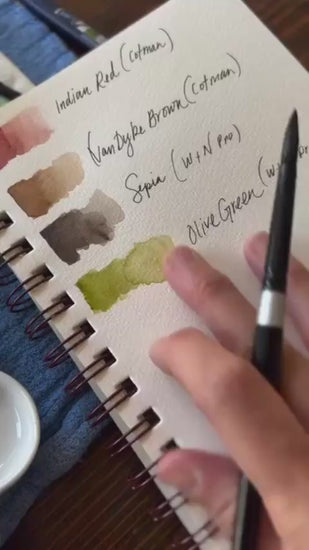 Indian Red (Cotman)
VanDyke Brown (Cotman)
Sepia (W+N Pro)
Olive Green (W+N Pro